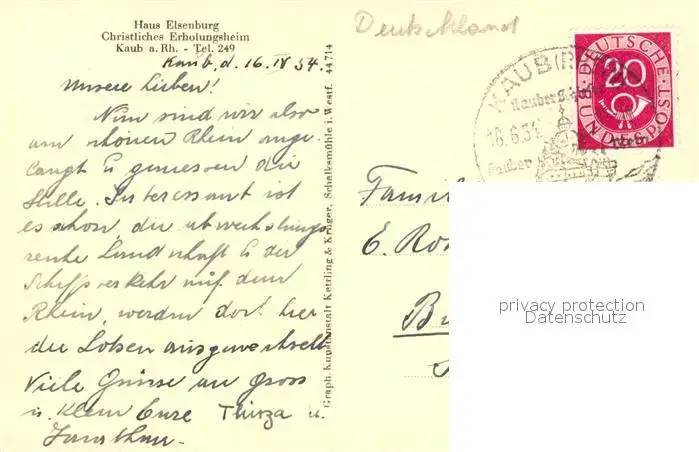 Haus Elsenburg
Christliches Erholungsheim
Kaub a. Rh. - Tel. 249
Kaub, d. 16. IV 54.
Unsere Lieben!
Nun sind wir also
am schönen Rhein ange-
langt u geniessen die
Stille. Interessant ist
es schon, die abwechslungs
reiche Landschaft u der
Schiffsverkehr auf dem
Rhein, werden doch hier
die Lotsen ausgewechselt
Viele Grüsse an Gross
u. Klein Eure Thirza u.
Jonathan.
Graph. Kunstanstalt Kettling & Krüger, Schalksmühle i. Westf. 44714
Deutschland
DEUTSCHE
20
BUNDESPOST
KAUB
Kauber
Kauber
Famil
E. Ro
B
privacy protection
Datenschutz